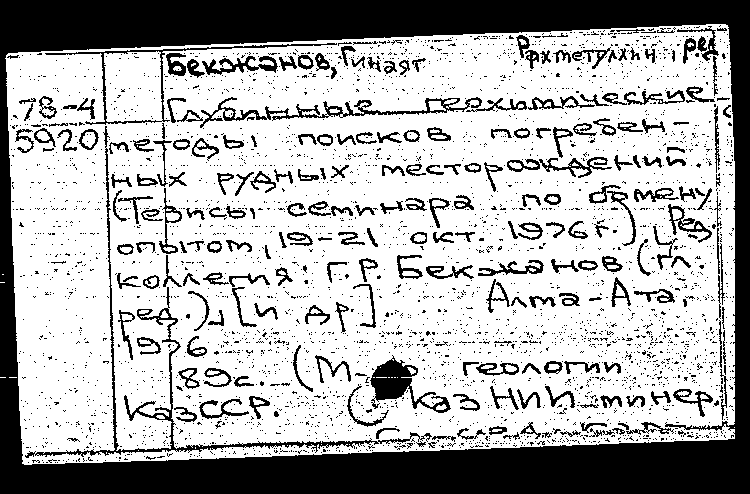 Бекжанов, Гинаят Рахметулхин, ред.
78-4 Глубинные геохимические
5920 методы поисков погребен-
ных рудных месторождений.
(Тезисы семинара по обмену
опытом, 19-21 окт. 1976г.). [Ред.
коллегия: Г.Р. Бекжанов (гл.
ред.)] [и др]. Алма-Ата,
1976.
89с. (М-во геологии
КазССР. КазНИИ минер.